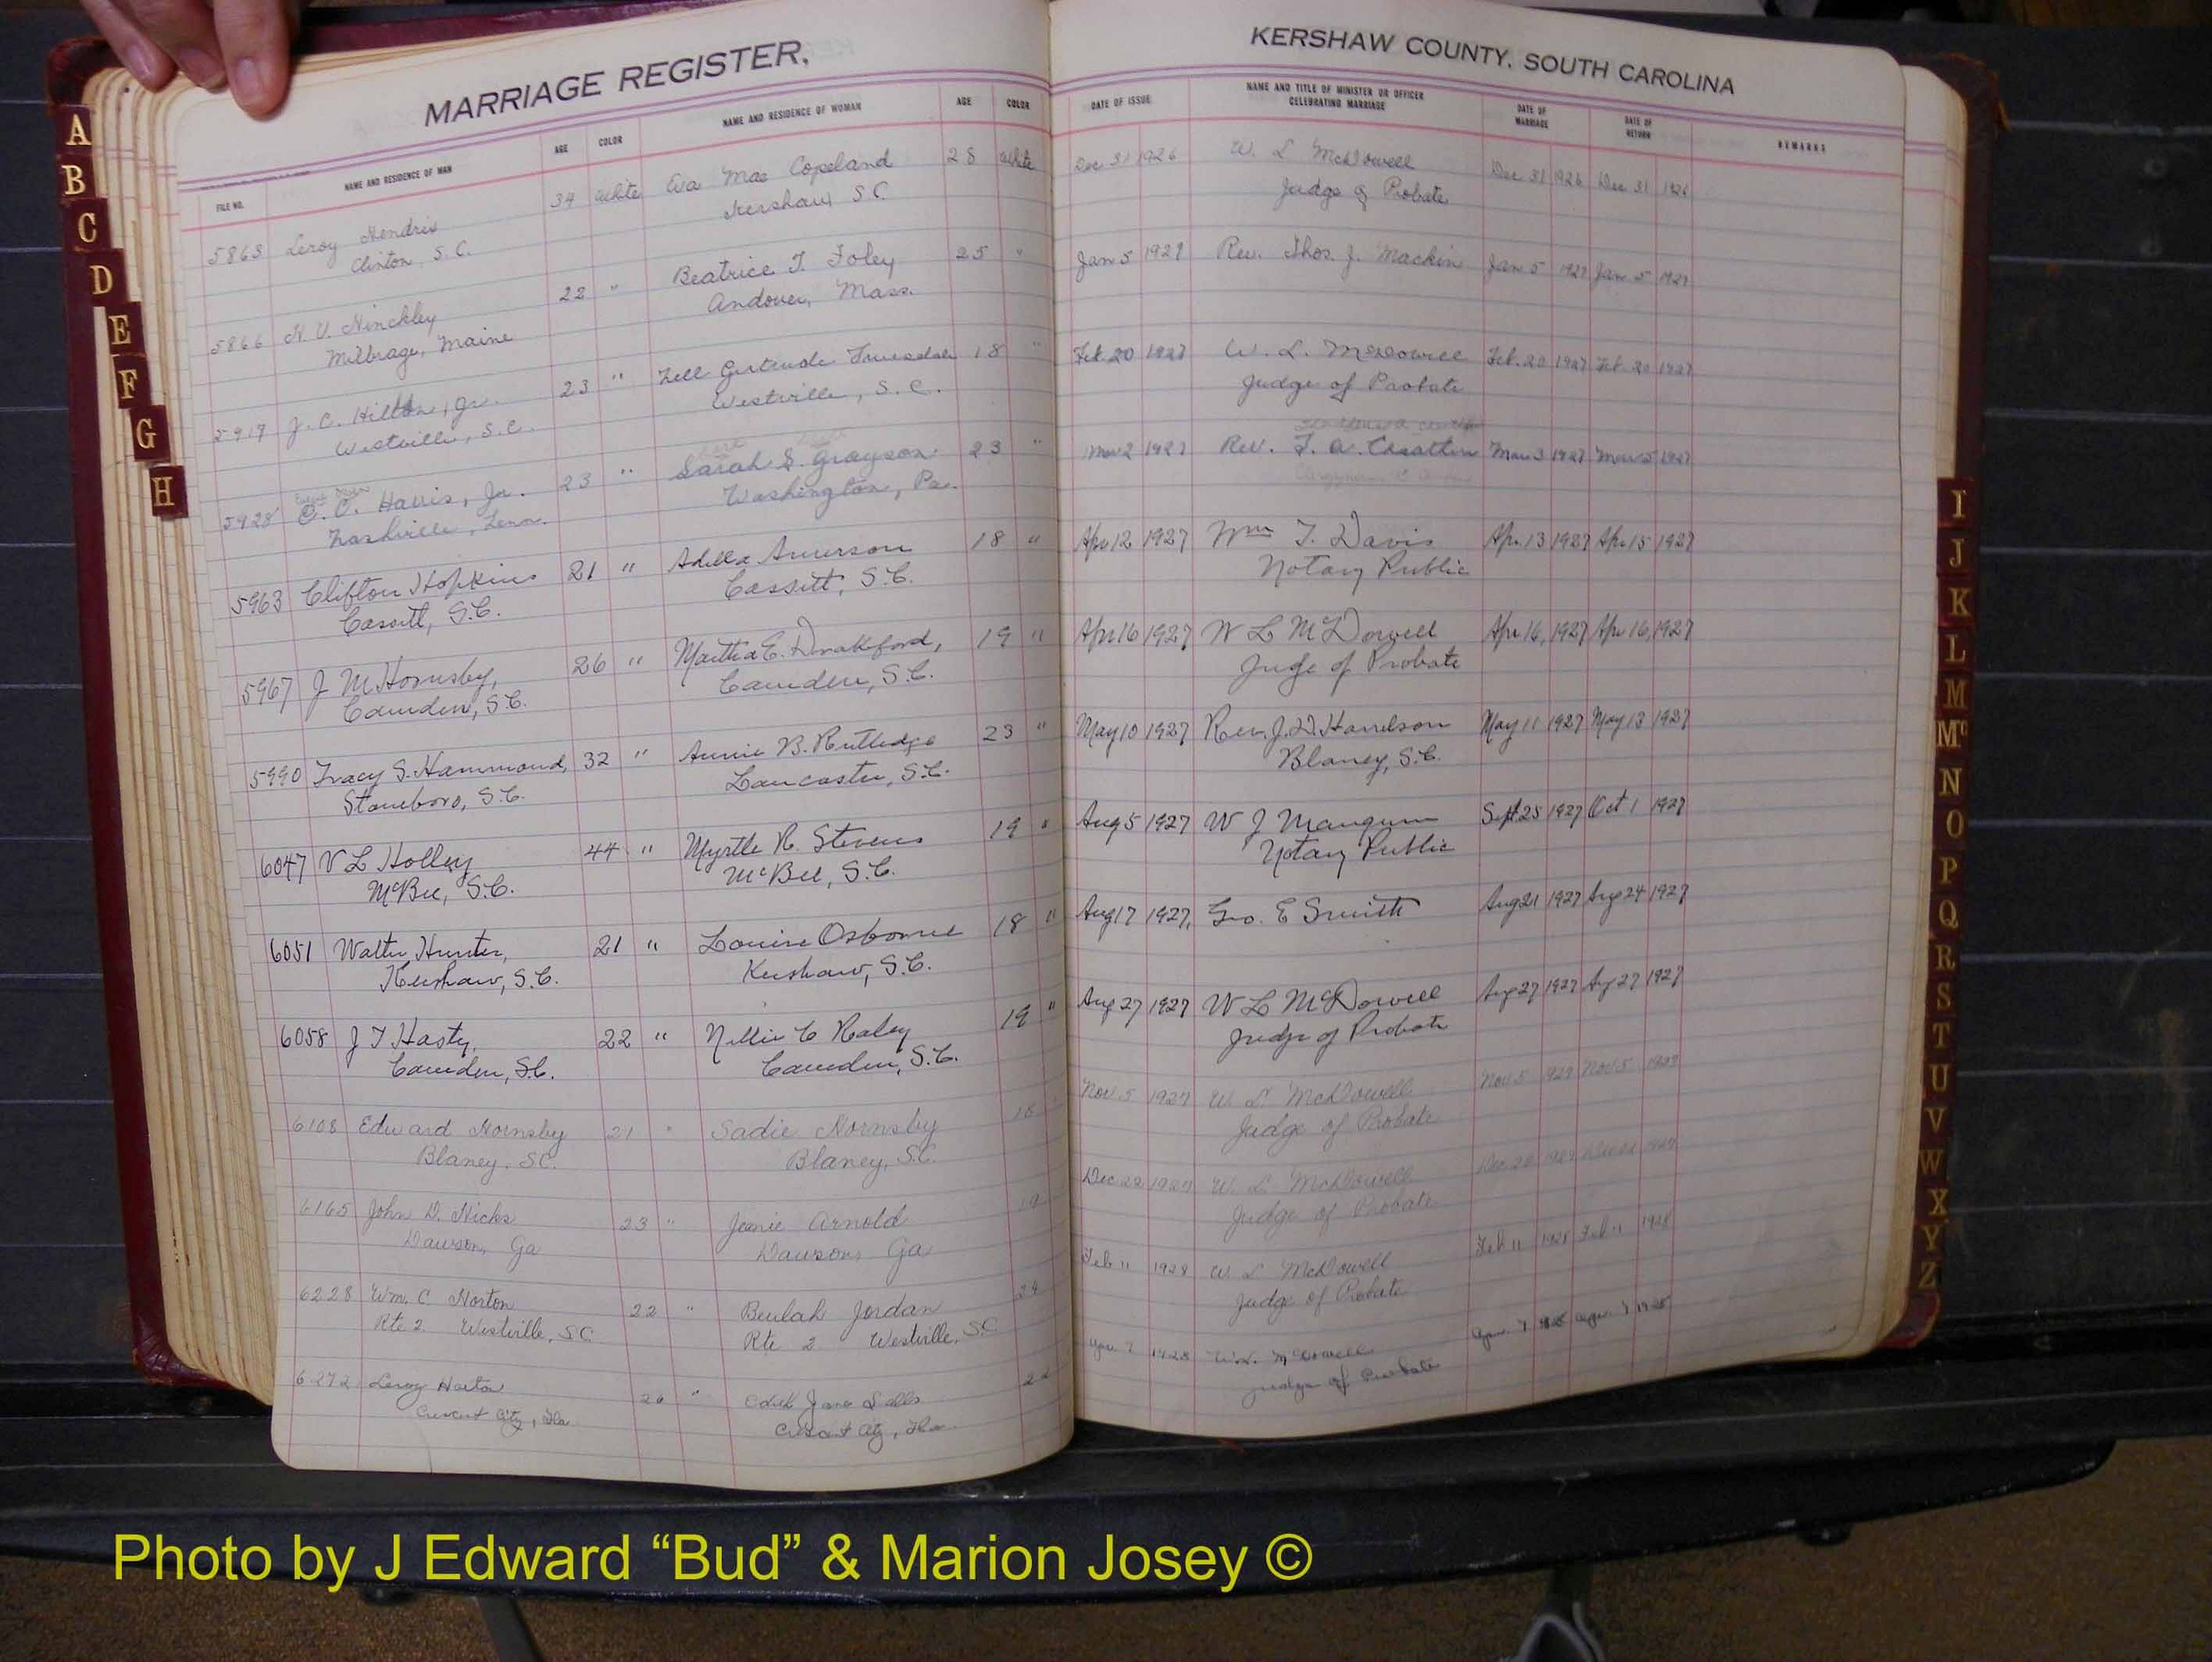 MARRIAGE REGISTER,
KERSHAW COUNTY, SOUTH CAROLINA
FILE NO. NAME AND RESIDENCE OF MAN AGE COLOR NAME AND RESIDENCE OF WOMAN AGE COLOR
DATE OF ISSUE NAME AND TITLE OF MINISTER OR OFFICER CELEBRATING MARRIAGE DATE OF MARRIAGE DATE OF RETURN REMARKS
5863 Leroy Hendrix 34 White Eva Mae Copeland 28 White Dec 31 1926 W. L. McDowell Dec 31 1926 Dec 31 1926
Clinton, S.C. Kershaw S.C. Judge of Probate
5866 H. V. Hinckley 22 " Beatrice T. Foley 25 " Jan 5 1927 Rev. Thos. J. Mackin Jan 5 1927 Jan 5 1927
Milbrage, Maine Andover, Mass.
5917 J. C. Hilton, Jr. 23 " Gertrude Truesdale 18 " Feb. 20 1927 W. L. McDowell Feb. 20 1927 Feb. 20 1927
Westville, S.C. Westville, S.C. Judge of Probate
5928 C. Harris, Jr. 23 " Sarah S. Grayson 23 " Mar 2 1927 Rev. F. A. Mar 3 1927 Mar 5 1927
Nashville, Tenn. Washington, Pa.
5963 Clifton Hopkins 21 " Adella 18 " Apr 12 1927 Wm T. Davis Apr. 13 1927 Apr. 15 1927
Cassatt, S.C. Cassatt, S.C. Notary Public
5967 J M Hornsby, 26 " Martha E. Drakeford, 19 " Apr 16 1927 W L McDowell Apr 16, 1927 Apr 16, 1927
Camden, S.C. Camden, S.C. Judge of Probate
5990 Tracy S. Hammond, 32 " Annie B. Rutledge 23 " May 10 1927 Rev. J. D. Harrelson May 11 1927 May 13 1927
Stoneboro, S.C. Lancaster, S.C. Blaney, S.C.
6047 V L Holley 44 " Myrtle R. Stevens 19 " Aug 5 1927 W J Mangum Sept 25 1927 Oct 1 1927
McBee, S.C. McBee, S.C. Notary Public
6051 Walter Hunter, 21 " Louise Osborne 18 " Aug 17 1927, Geo. E Smith Aug 21 1927 Aug 24 1927
Kershaw, S.C. Kershaw, S.C.
6058 J T Hasty, 22 " Nellie C Raley 19 " Aug 27 1927 W L McDowell Aug 27 1927 Aug 27 1927
Camden, S.C. Camden, S.C. Judge of Probate
6108 Edward Hornsby 21 " Sadie Hornsby Nov. 5 1927 W L McDowell Nov. 5 1927 Nov. 5 1927
Blaney, S.C. Blaney, S.C. Judge of Probate
6165 John D. Hicks 23 " Jeanie Arnold 19 Dec 1927 W. L McDowell Dec 1927
Dawson, Ga Dawson, Ga Judge of Probate
6228 Wm. C. Horton 22 " Beulah Jordan 24 Feb 11 1928 W L McDowell Feb 11 1928 Feb 11 1928
Rte 2. Westville, S.C. Rte 2 Westville, S.C. Judge of Probate
6272 Leroy 26 " Edith Jane Apr. 7 1928 W.L. McDowell Apr. 7 1928 Apr. 7 1928
Crescent City, Fla. Crescent City, Fla. Judge of Probate
A
B
C
D
E
F
G
H
I
J
K
L
M
Mc
N
O
P
Q
R
S
T
U
V
W
X
Y
Z
Photo by J Edward “Bud” & Marion Josey ©